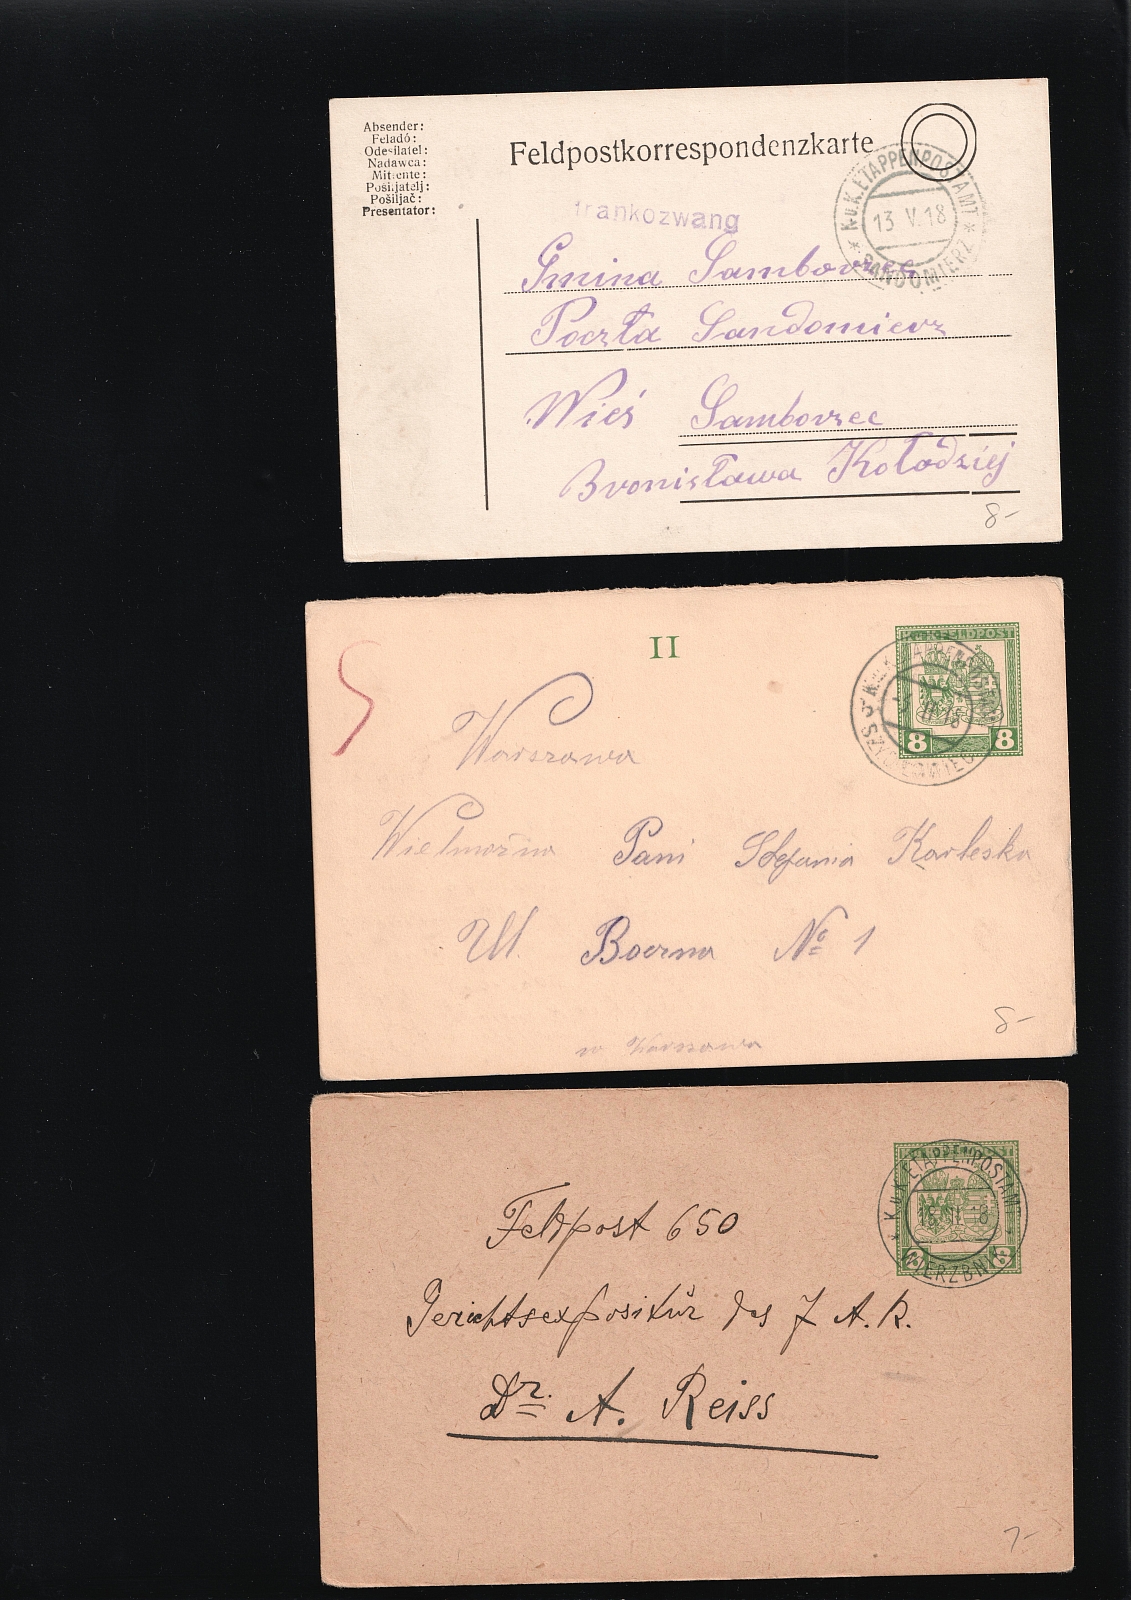 Absender:
Feladó:
Odesílatel:
Nadawca:
Mittente:
Pošiljatelj:
Pošiljač:
Presentator:
Feldpostkorrespondenzkarte
K.u.K. ETAPPENPOSTAMT
13 V. 18
SANDOMIERZ
frankozwang
Gmina Samborzec
Poczta Sandomierz
Wieś Samborzec
Bronisława Kołodziej
8-
II
K.u.K. FELDPOST
8 8
Warszawa
Wielmożna Pani Stefania
Ul. No 1
w Warszawa
8-
K.u.K. ETAPPENPOSTAMT
WIERZBNIK
Feldpost 650
Gerichtsexpositur des J. A. R.
Dr. A. Reiss
7-